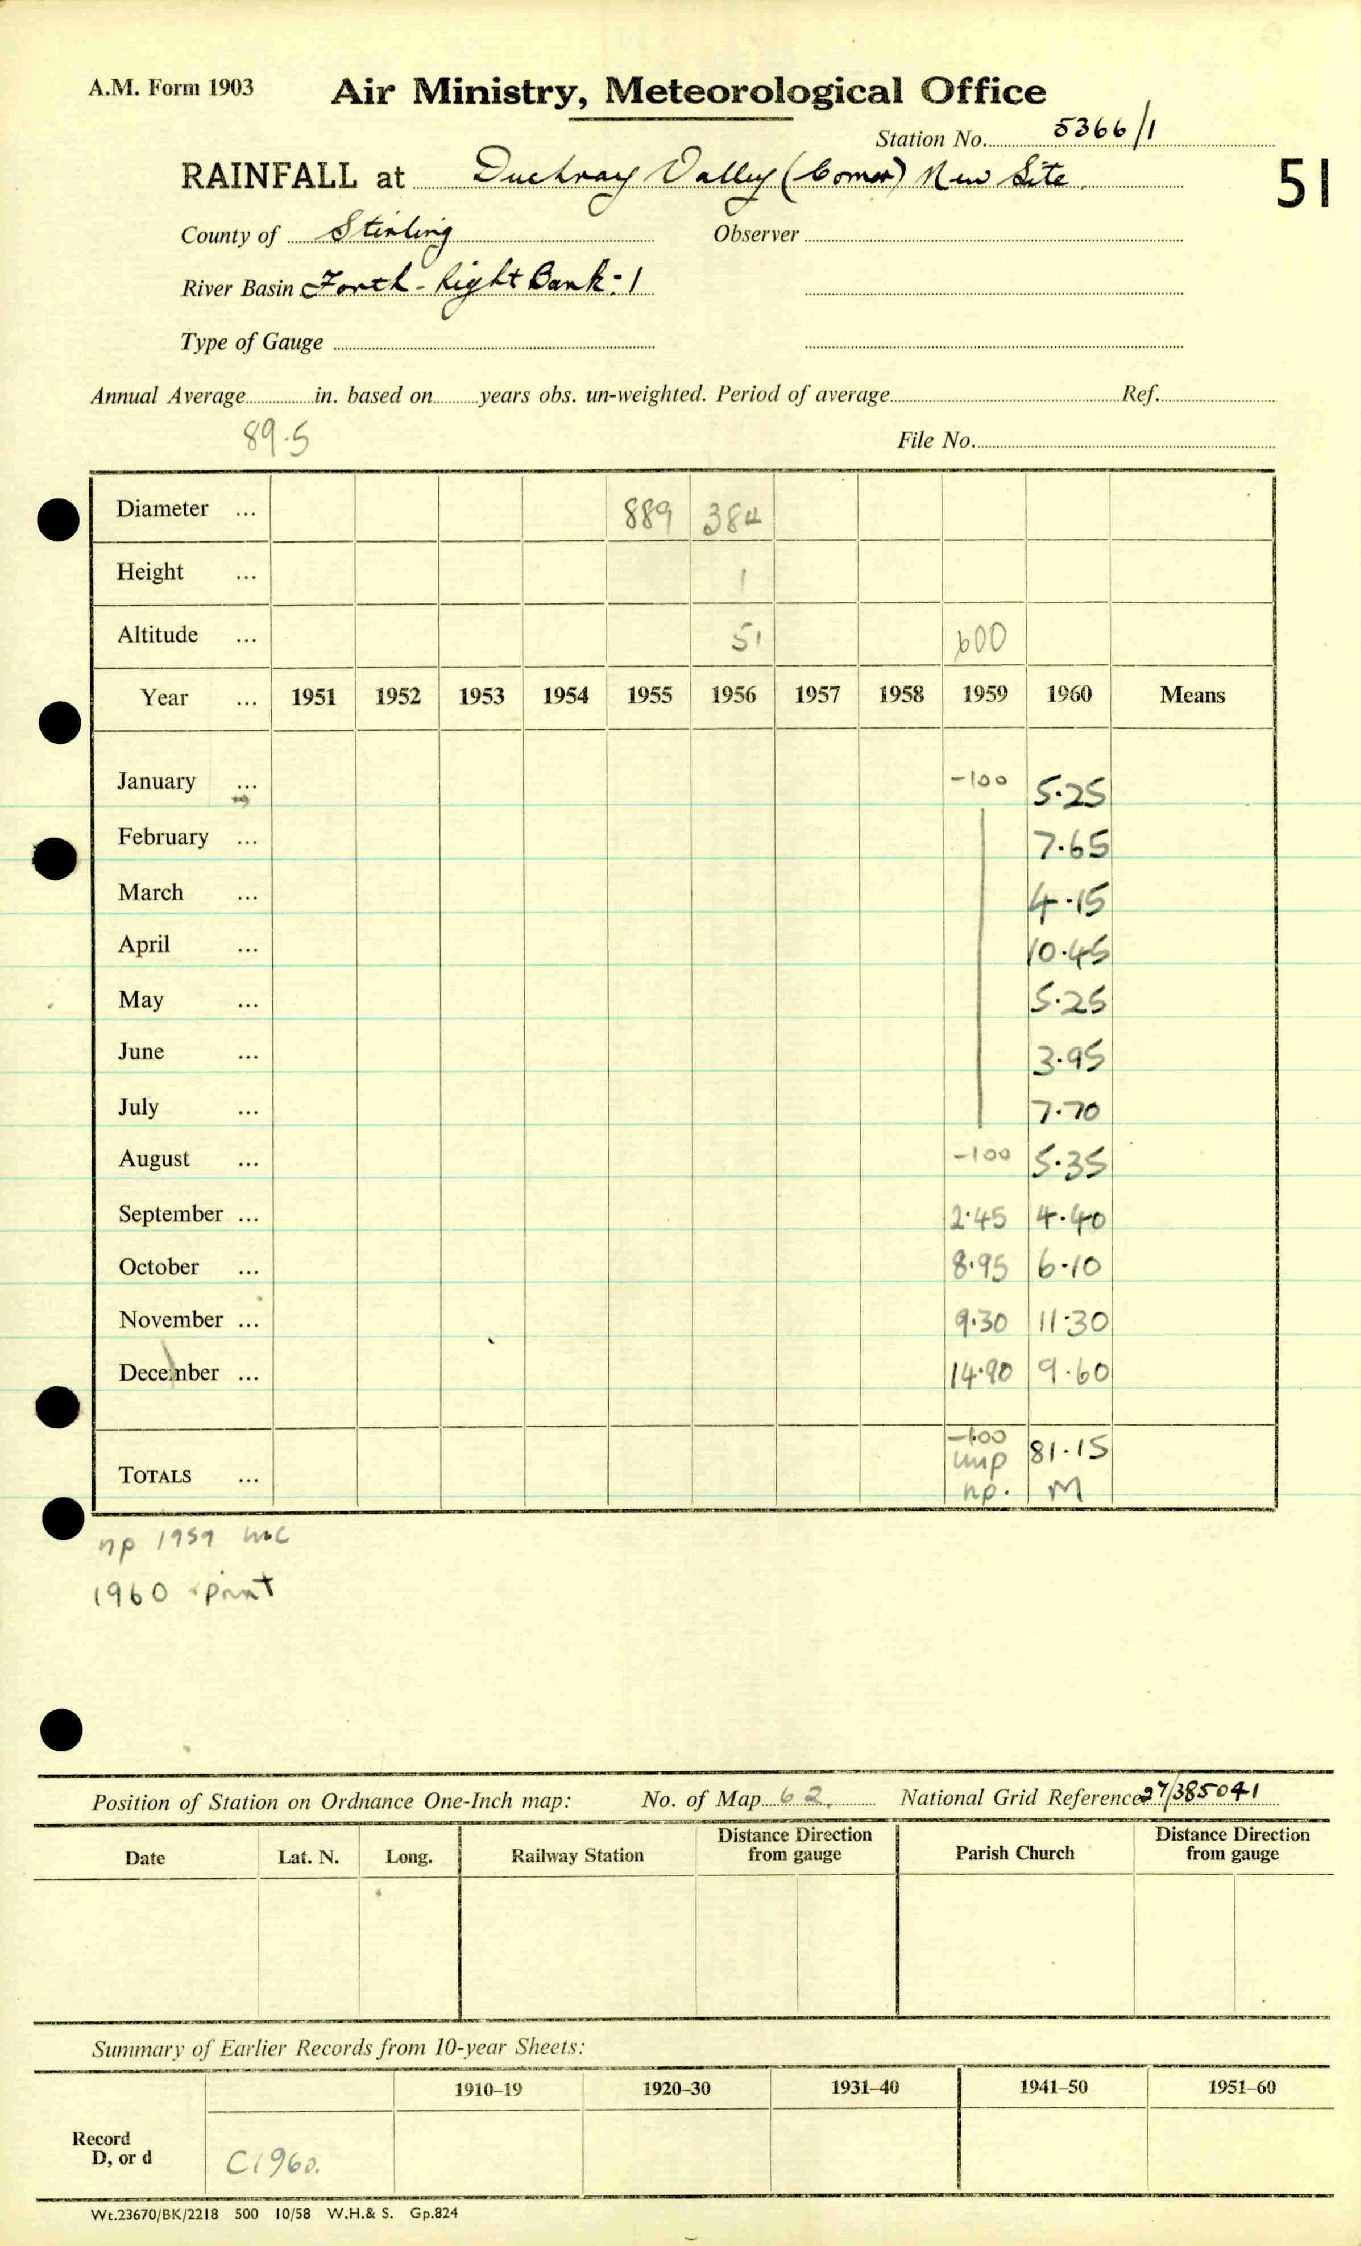 A.M. Form 1903 Air Ministry, Meteorological Office
Station No. 5366/1
RAINFALL at Duchray Valley (Comer) New Site. 51
County of Stirling Observer
River Basin Forth - Right Bank:1
Type of Gauge
Annual Average in. based on years obs. un-weighted. Period of average Ref.
89.5 File No.
Diameter ... 889 384
Height ... 1
Altitude ... 51 600
Year ... 1951 1952 1953 1954 1955 1956 1957 1958 1959 1960 Means
January ... -100 5.25
February ... 7.65
March ... 4.15
April ... 10.45
May ... 5.25
June ... 3.95
July ... 7.70
August ... -100 5.35
September ... 2.45 4.40
October ... 8.95 6.10
November ... 9.30 11.30
December ... 14.90 9.60
-100
TOTALS ... unp 81.15
np. M
np 1959 inc
1960 print
Position of Station on Ordnance One-Inch map: No. of Map 62. National Grid Reference 27/385041
Date Lat. N. Long. Railway Station Distance Direction from gauge Parish Church Distance Direction from gauge
Summary of Earlier Records from 10-year Sheets:
1910–19 1920–30 1931–40 1941–50 1951–60
Record
D, or d C1960.
Wt.23670/BK/2218 500 10/58 W.H.& S. Gp.824